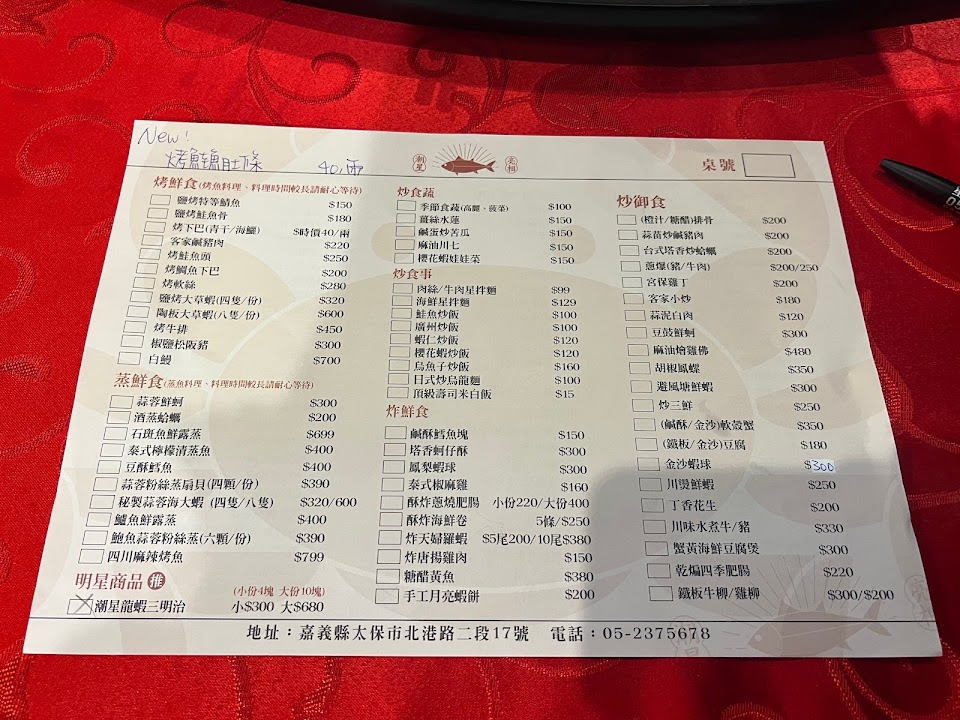 New!
烤鱻鱺肚條 40/兩
潮星 北相
桌號
烤鮮食(烤魚料理、料理時間較長請耐心等待)
鹽烤特等鯖魚 $150
鹽烤鮭魚骨 $180
烤下巴(青干/海鱺) $時價40/兩
客家鹹豬肉 $220
烤鮭魚頭 $250
烤鯛魚下巴 $200
烤軟絲 $280
鹽烤大草蝦(四隻/份) $320
陶板大草蝦(八隻/份) $600
烤牛排 $450
椒鹽松阪豬 $300
白鰻 $700
蒸鮮食(蒸魚料理、料理時間較長請耐心等待)
蒜蓉鮮蚵 $300
酒蒸蛤蠣 $200
石斑魚鮮露蒸 $699
泰式檸檬清蒸魚 $400
豆酥鱈魚 $400
蒜蓉粉絲蒸扇貝(四顆/份) $390
秘製蒜蓉海大蝦 (四隻/八隻) $320/600
鱸魚鮮露蒸 $400
鮑魚蒜蓉粉絲蒸(六顆/份) $390
四川麻辣烤魚 $799
明星商品 推 (小份4塊 大份10塊)
潮星龍蝦三明治 小$300 大$680
炒食蔬
季節食蔬(高麗、菠菜) $100
薑絲水蓮 $150
鹹蛋炒苦瓜 $150
麻油川七 $150
櫻花蝦娃娃菜 $150
炒食事
肉絲/牛肉星拌麵 $99
海鮮星拌麵 $129
鮭魚炒飯 $100
廣州炒飯 $100
蝦仁炒飯 $120
櫻花蝦炒飯 $120
烏魚子炒飯 $160
日式炒烏龍麵 $100
頂級壽司米白飯 $15
炸鮮食
鹹酥鱈魚塊 $150
塔香蚵仔酥 $300
鳳梨蝦球 $300
泰式椒麻雞 $160
酥炸蔥燒肥腸 小份220/大份400
酥炸海鮮卷 5條/$250
炸天婦羅蝦 $5尾200/10尾$380
炸唐揚雞肉 $150
糖醋黃魚 $380
手工月亮蝦餅 $200
炒御食
(橙汁/糖醋)排骨 $200
蒜苗炒鹹豬肉 $200
台式塔香炒蛤蠣 $200
蔥爆(豬/牛肉) $200/250
宮保雞丁 $200
客家小炒 $180
蒜泥白肉 $120
豆鼓鮮蚵 $300
麻油燴雞佛 $480
胡椒鳳螺 $350
避風塘鮮蝦 $300
炒三鮮 $250
(鹹酥/金沙)軟殼蟹 $350
(鐵板/金沙)豆腐 $180
金沙蝦球 $300
川燙鮮蝦 $250
丁香花生 $200
川味水煮牛/豬 $330
蟹黃海鮮豆腐煲 $300
乾煸四季肥腸 $220
鐵板牛柳/雞柳 $300/$200
地址：嘉義縣太保市北港路二段17號 電話：05-2375678